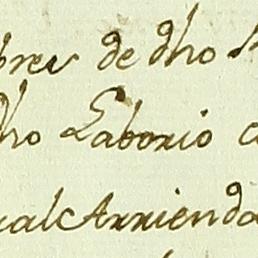 brev de dho
dho Laborio
ual Arrienda